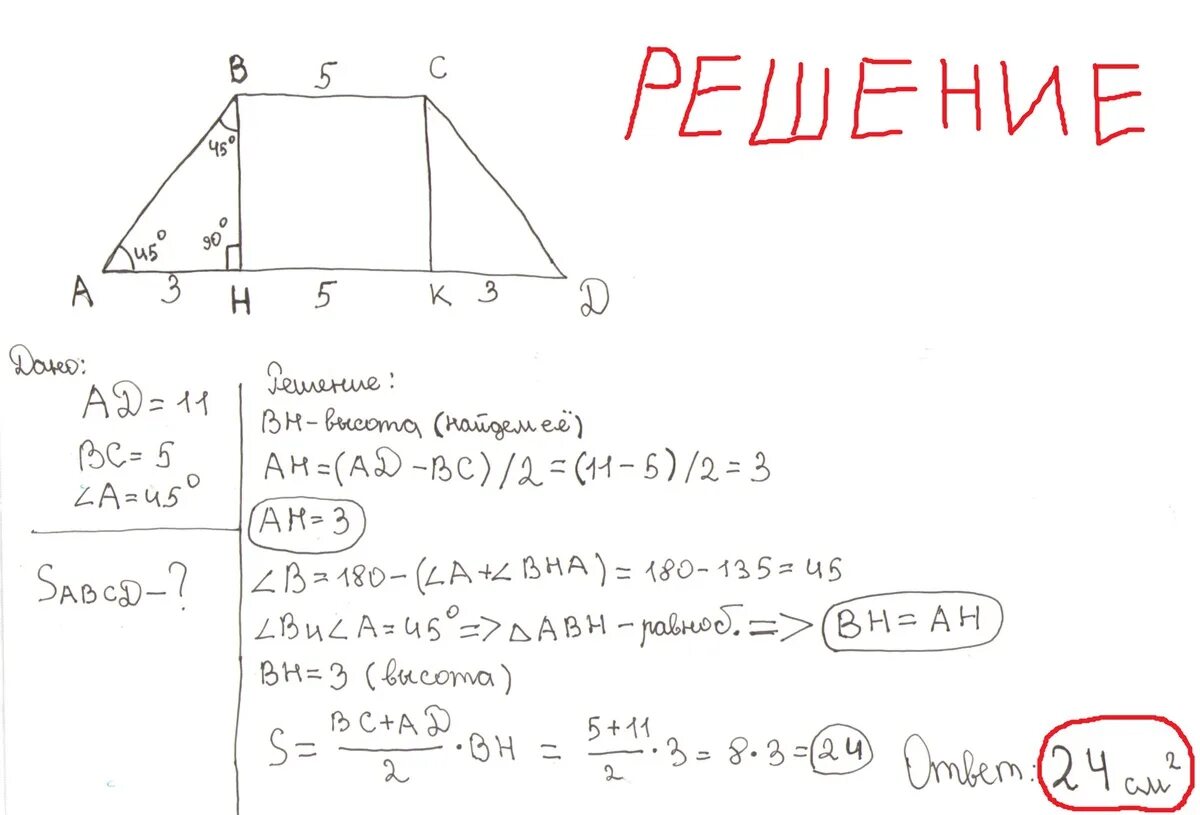 РЕШЕНИЕ
B 5 C
45°
45° 90°
A 3 H 5 K 3 D
Дано:
AD = 11
BC = 5
∠A = 45°
S ABCD - ?
Решение:
BH - высота (найдем её)
AH = (AD - BC) / 2 = (11 - 5) / 2 = 3
AH = 3
∠B = 180 - (∠A + ∠BHA) = 180 - 135 = 45
∠B и ∠A = 45° => △ABH - равноб. => BH = AH
BH = 3 (высота)
S = BC + AD / 2 · BH = 5 + 11 / 2 · 3 = 8 · 3 = 24
Ответ: 24 см²